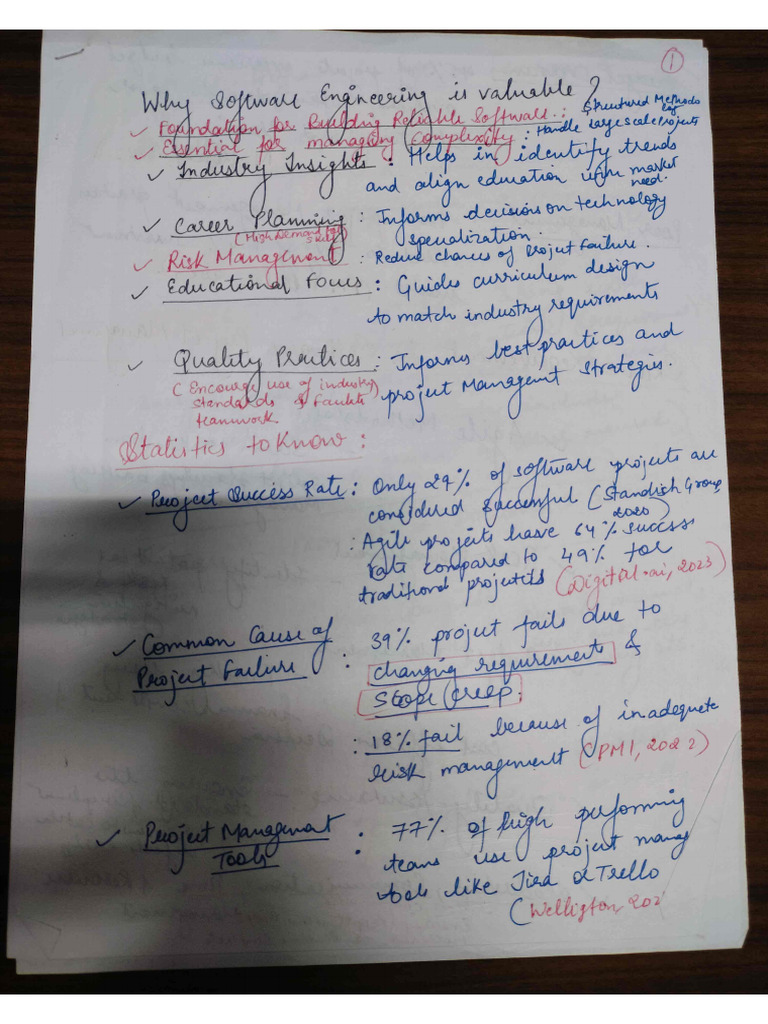 1
Why Software Engineering is valuable?
✓ Foundation for Building Reliable Software : Structured Methods
✓ Essential for managing Complexity : Handle large scale Projects
✓ Industry Insights : Helps in identify trends
and align education with market
need.
✓ Career Planning : Informs decisions on technology
(High Demand for
skill)
specialization.
✓ Risk Management : Reduce chances of Project Failure.
✓ Educational Focus : Guides curriculum design
to match industry requirements
✓ Quality Practices : Informs best practices and
project Management Strategies.
(Encourage use of industry
standards &
teamwork.
Statistics to Know :
✓ Project Success Rate : Only 29% of software projects are
considered successful (Standish Group,
2020)
: Agile projects have 64% success
rate compared to 49% for
traditional
(Digital.ai, 2023)
✓ Common Cause of
Project Failure : 39% project fails due to
changing requirement &
Scope Creep.
: 18% fail because of inadequate
risk management (PMI, 2022)
✓ Project Management
Tools : 77% of high performing
teams use project manag
tools like Jira or Trello
(Welligton, 202